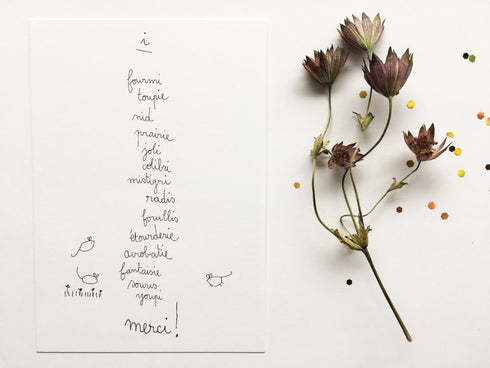 i
fourmi
toupie
nid
prairie
joli
colibri
mistigri
radis
fouillis
étourderie
acrobatie
fantaisie
souris
youpi
merci !